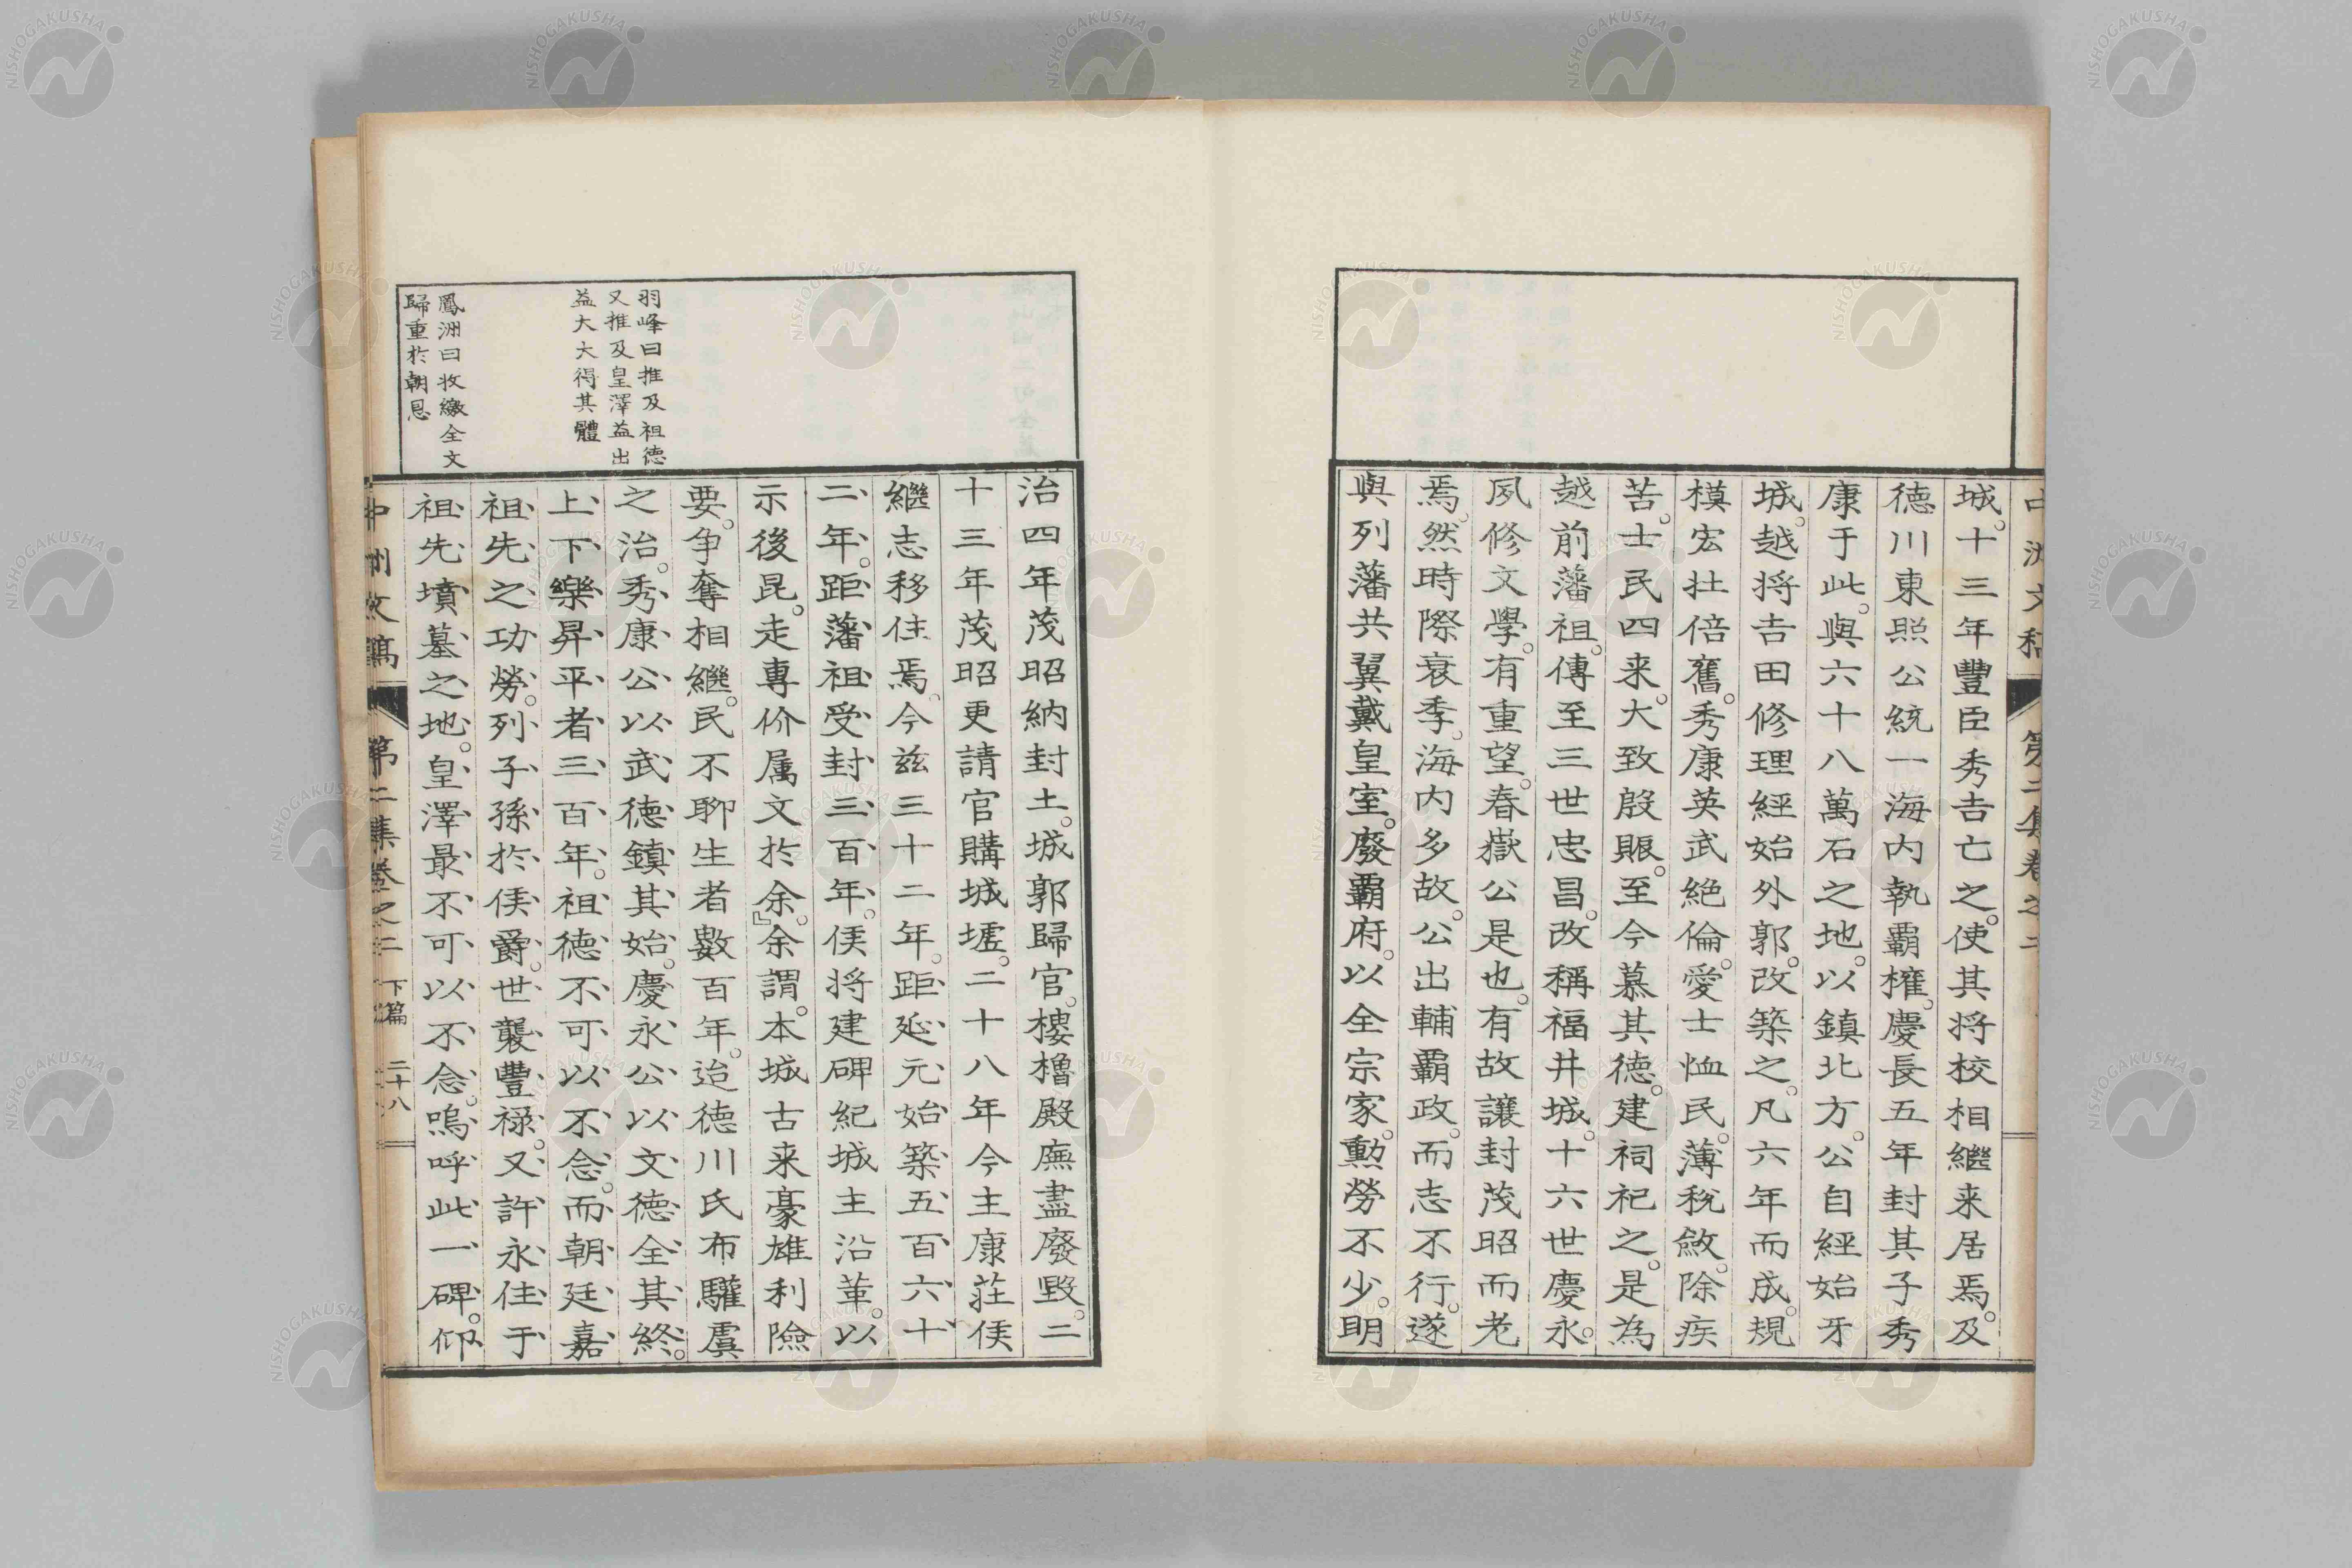 中洲文稿 第二集卷之二
城。十三年豐臣秀吉亡之。使其将校相繼来居焉。及
德川東照公統一海内執覇權。慶長五年封其子秀
康于此。與六十八萬石之地。以鎮北方。公自經始牙
城。越将吉田修理經始外郭。改築之。凡六年而成。規
模宏壮倍舊。秀康英武絶倫。愛士恤民。薄税斂。除疾
苦。士民四来。大致殷賑。至今慕其德。建祠祀之。是為
越前藩祖。傳至三世忠昌。改稱福井城。十六世慶永。
夙修文學。有重望。春嶽公是也。有故讓封茂昭而老
焉。然時際衰季。海内多故。公出輔覇政。而志不行。遂
與列藩共翼戴皇室。廢覇府。以全宗家。勲勞不少。明
治四年茂昭納封土。城郭歸官。樓櫓殿廡盡廢毀。二
十三年茂昭更請官購城墟。二十八年今主康荘侯
繼志移住焉。今茲三十二年。距延元始築五百六十
二年。距藩祖受封三百年。侯将建碑紀城主沿革。以
示後昆。走専价属文於余。』余謂。本城古来豪雄利險
要。争奪相繼。民不聊生者數百年。迨德川氏布驩虞
之治。秀康公以武德鎮其始。慶永公以文德全其終。
上下樂昇平者三百年。祖德不可以不念。而朝廷嘉
祖先之功勞。列子孫於侯爵。世襲豐禄。又許永住于
祖先墳墓之地。皇澤最不可以不念。嗚呼此一碑。仰
羽峰曰推及祖德
又推及皇澤益出
益大大得其體
鳳洲曰收繳全文
歸重於朝恩
中洲文稿 第二集卷之二 下篇 二十八